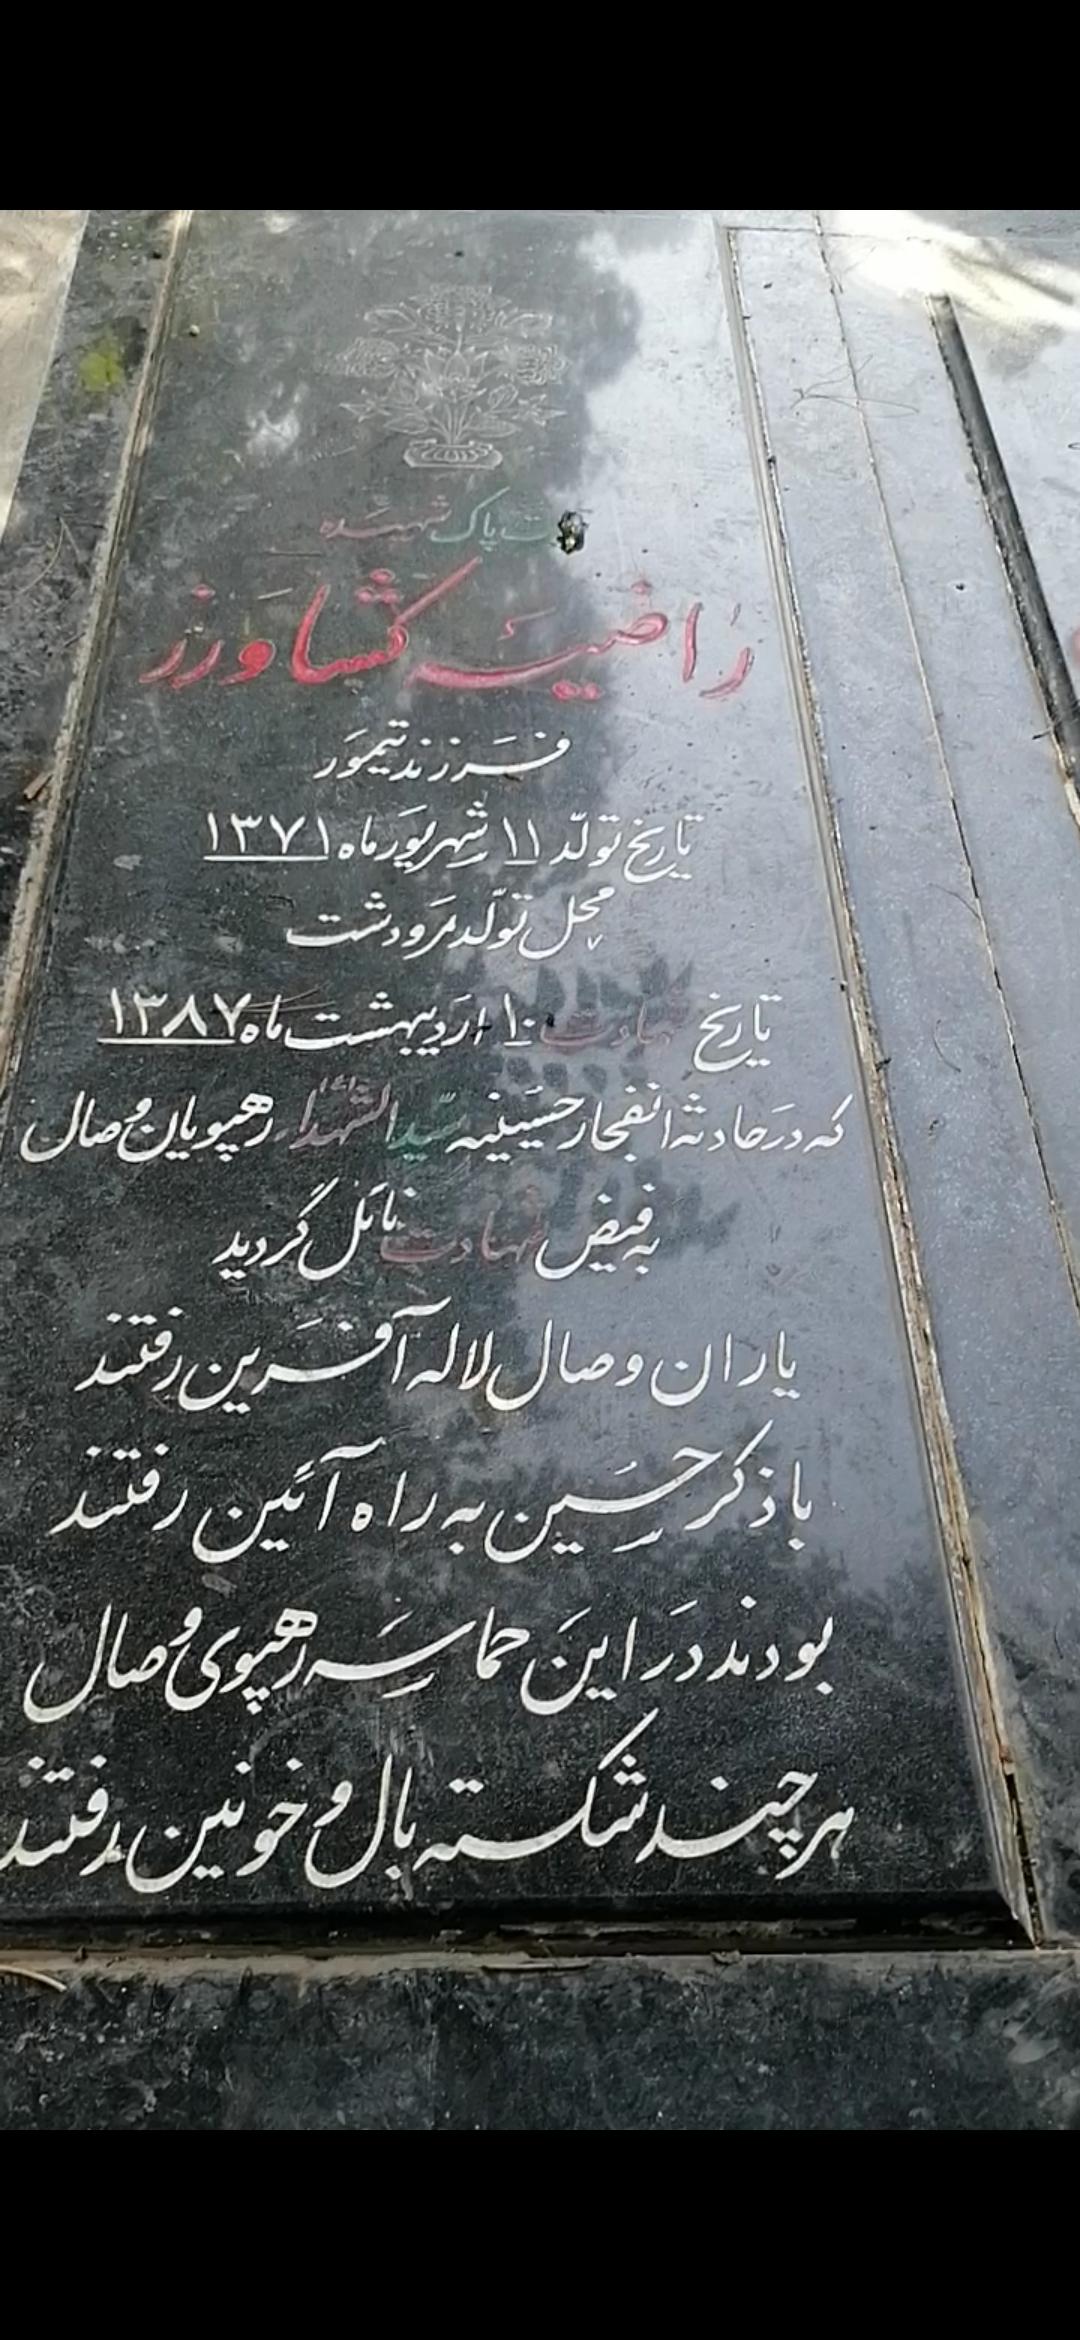 پاک شهیده
راضیه کشاورز
فرزند تیمور
تاریخ تولّد ۱۱ شهریور ماه ۱۳۷۱
محل تولّد مرودشت
تاریخ شهادت ۱۰ اردیبهشت ماه ۱۳۸۷
که در حادثه انفجار حسینیه سیّد الشهداء رهپویان وصال
به فیض شهادت نائل گردید
یاران وصال لاله آفرین رفتند
با ذکر حسین به راه آئین رفتند
بودند در این حماسه رهپوی وصال
هر چند شکسته بال و خونین رفتند